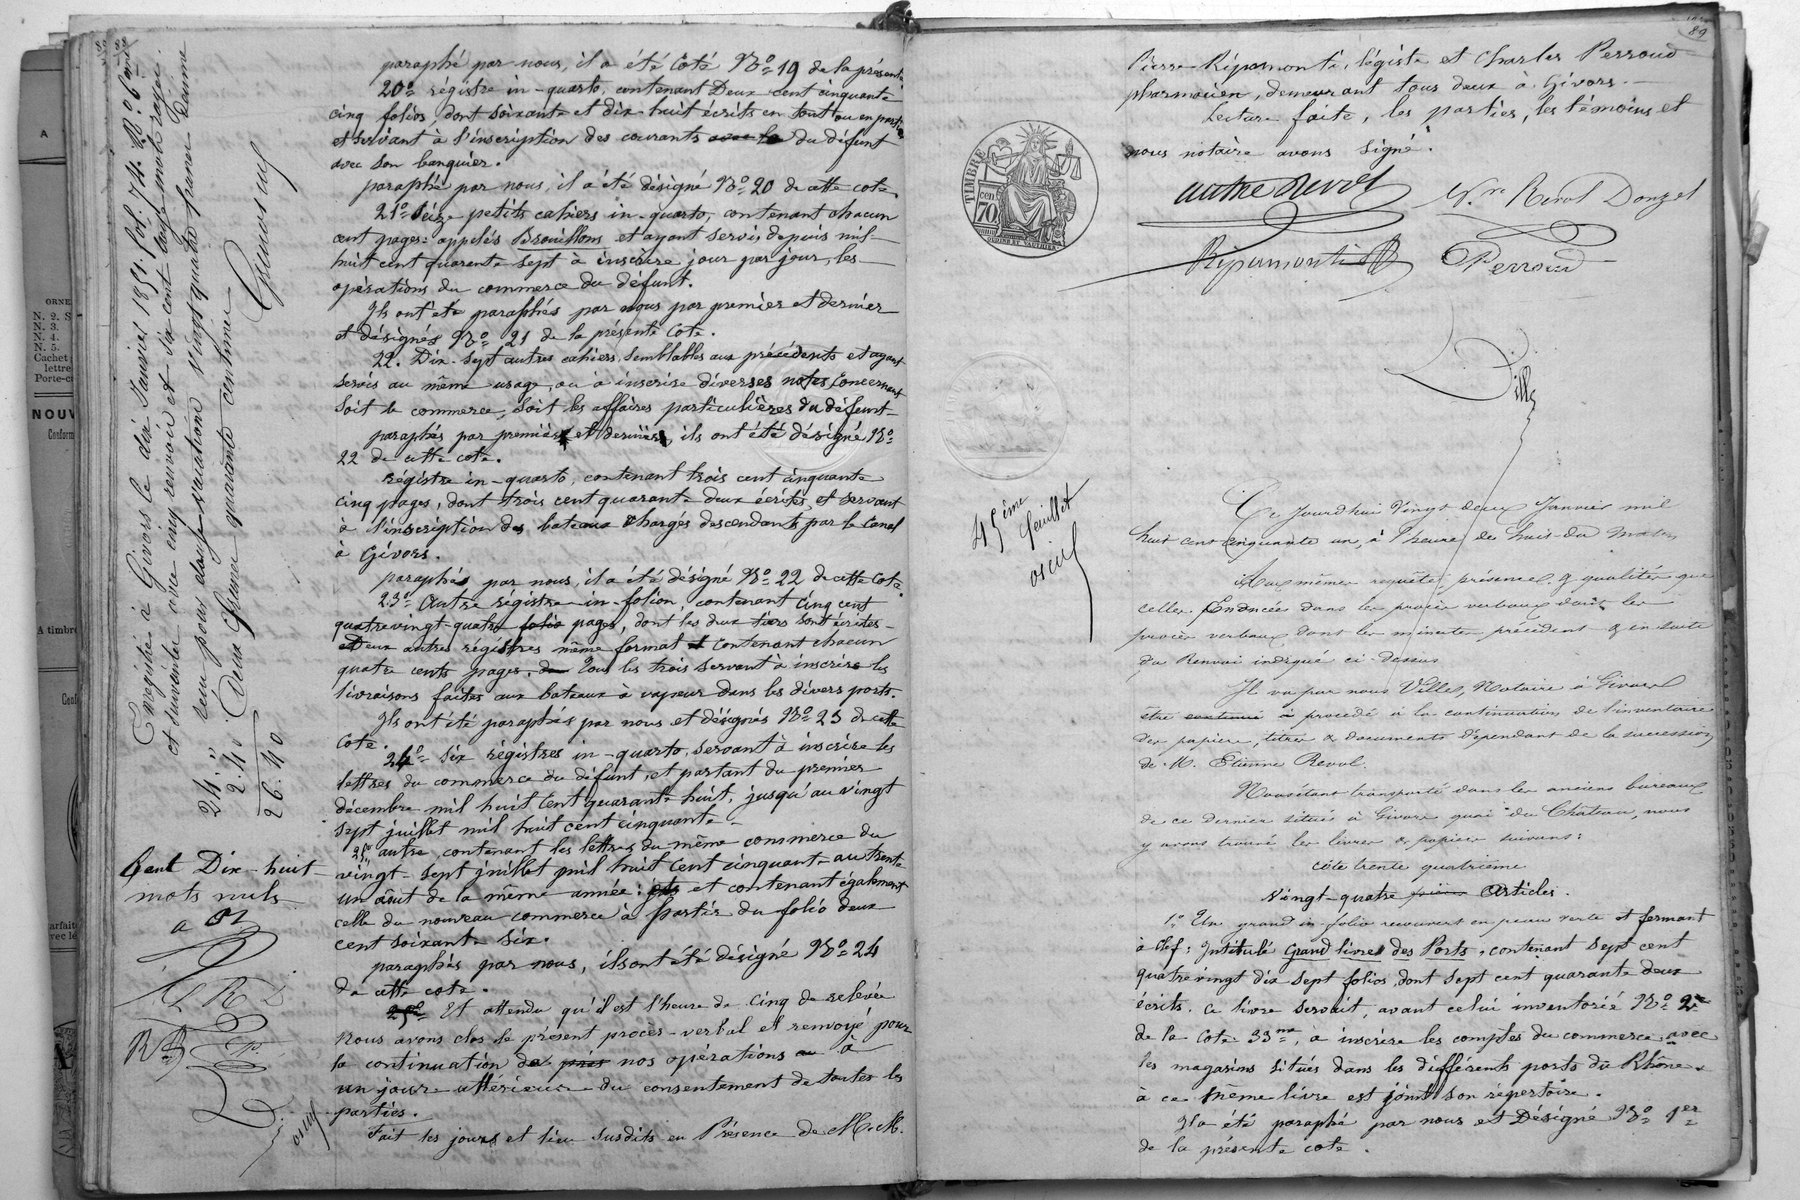 88
paraphé par nous, il a été coté No 19 de la présente
20o régistre in-quarto, contenant Deux cent cinquante
cinq folios, dont soixante et dix huit écrits en tout ou en partie
et servant à l'inscription des courants avec le du défunt
avec son banquier.
paraphé par nous, il a été désigné No 20 de cette cote.
21o Seize petits cahiers in-quarto, contenant chacun
cent pages: appelés Brouillons et ayant servis depuis mil
huit cent quarante sept à inscrire jour par jour, les
opérations du commerce du défunt.
Ils ont été paraphés par nous par premier et dernier
et désignés No 21 de la présente cote.
22. Dix-sept autres cahiers, semblables aux précédents et ayant
servis au même usage, ou à inscrire diverses notes concernant
soit le commerce, soit les affaires particulières du défunt
paraphés par premiers et derniers, ils ont été désigné No
22 de cette cote.
régistre in-quarto, contenant trois cent cinquante
cinq pages, dont trois cent quarante deux écrites, et servant
à l'inscription des bateaux chargés descendants par le Canal
à Givors.
paraphés par nous, il a été désigné No 22 de cette cote.
23o Autre régistre in-folion, contenant cinq cent
quatrevingt-quatre folio pages, dont les deux tiers sont écrites
Deux autres régistres même format et contenant chacun
quatre cents pages, de Tous les trois servant à inscrire les
livraisons faites aux bateaux à vapeur dans les divers ports.
Ils ont été paraphés par nous et désignés No 23 de cette
cote.
24o Six régistres in-quarto, servant à inscrire les
lettres du commerce du défunt, et partant du premier
décembre mil huit cent quarante huit, jusqu'au vingt
sept juillet mil huit cent cinquante
25o autre, contenant les lettres du même commerce du
vingt-sept juillet mil huit cent cinquante au trente
un août de la même année: et contenant également
celle du nouveau commerce à partir du folio deux
cent soixante six.
paraphés par nous, ils ont été désigné No 24
de cette cote.
25o Et attendu qu'il est l'heure de cinq de relevée
nous avons clos le présent procès-verbal et renvoyé pour
la continuation de nos opérations à
un jour ultérieur du consentement de toutes les
parties.
Fait les jours et lieu susdits en Présence de M.M.
Enregistré à Givors le dix Janvier 1851. fol. 74. Ro. 6
reçu pour douze vacations vingt quatre francs Décime
Deux francs quarante centimes
24. "
2. 40
26. 40
Cent Dix-huit
mots nuls
89
Pierre Ripamonti, légiste et Charles Perroud
pharmacien, demeurant tous deux à Givors.
Lecture faite, les parties, les témoins et
nous notaire avons signé.
TIMBRE
cen
70
antne Revol
Ve Revol Donzel
Ripamonti
Perroud
45ème
feuillet
Ce jourdhui Vingt deux Janvier mil
huit cent cinquante un, à l'heure de huit du matin
Aux mêmes requêtes, présence & qualités que
celles énoncées dans les procès verbaux dont les
procès verbaux dont les minutes précèdent & en suite
du Renvoi indiqué ci-dessus
Il va par nous Villes, Notaire à Givors
être continué à procédé à la continuation de l'inventaire
des papiers, titres & documents dépendant de la succession
de M. Etienne Revol.
Nous étant transporté dans les anciens bureaux
de ce dernier situés à Givors quai du Château, nous
y avons trouvé les livres & papiers suivans:
côte trente quatrième
Vingt-quatre articles.
1o Un grand in folio recouvert en peau verte et fermant
à clef: Intitulé Grand livre des Ports, contenant sept cent
quatrevingt dix sept folios, dont sept cent quarante deux
écrits. Ce livre servait, avant celui inventorié No 2
de la cote 33me, à inscrire les comptes du commerce avec
les magasins situés dans les différents ports du Rhône.
à ce même livre est joint son répertoire.
Il a été paraphé par nous et Désigné No 1er
de la présente cote.